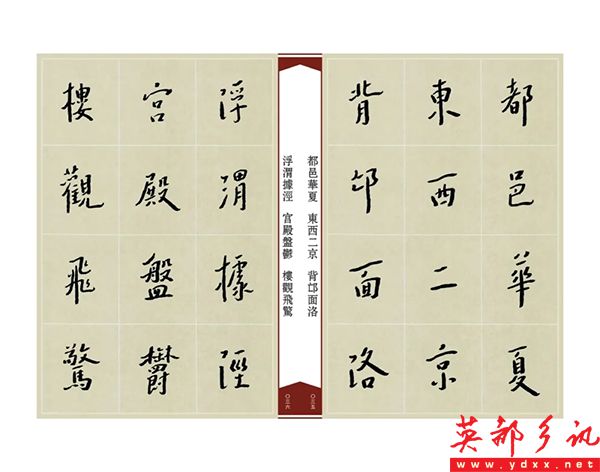 都邑華夏
東西二京
背邙面洛
都邑華夏 東西二京 背邙面洛
浮渭據涇 宮殿盤鬱 樓觀飛驚
〇三五
〇三六
浮渭據涇
宮殿盤鬱
樓觀飛驚
英都乡讯
www.ydxx.net